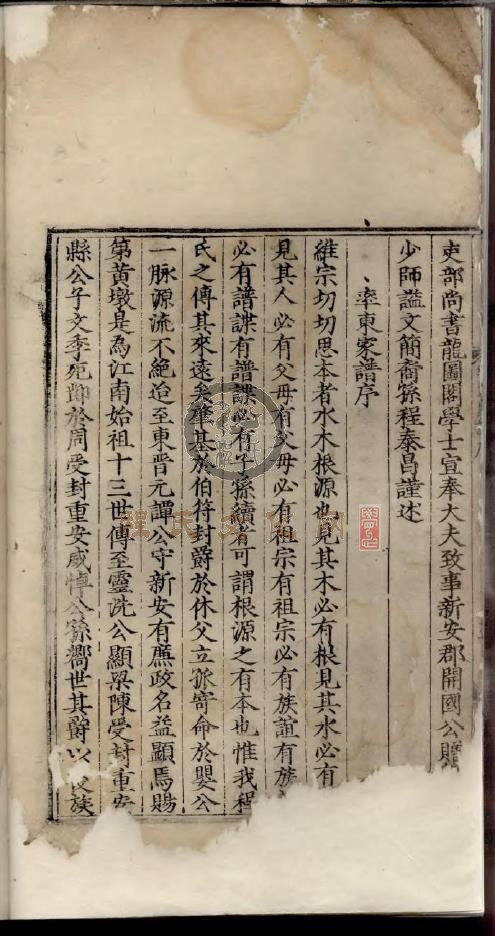 吏部尚書龍圖閣學士宣奉大夫致事新安郡開國公贈
少師諡文簡裔孫程泰昌謹述
率東家譜序
維宗切切思本者水木根源也見其木必有根見其水必有
見其人必有父母有父母必有祖宗有祖宗必有族誼有族
必有譜諜有譜諜必有子孫續者可謂根源之有本也惟我程
氏之傳其來遠矣肇基於伯符封爵於休父立孤寄命於嬰公
一脉源流不絕迨至東晉元譚公守新安有廉政名益顯焉賜
第黃墩是為江南始祖十三世傳至靈洗公顯梁陳受封重安
縣公子文季死節於周受封重安威悼公孫嚮世其爵以後族